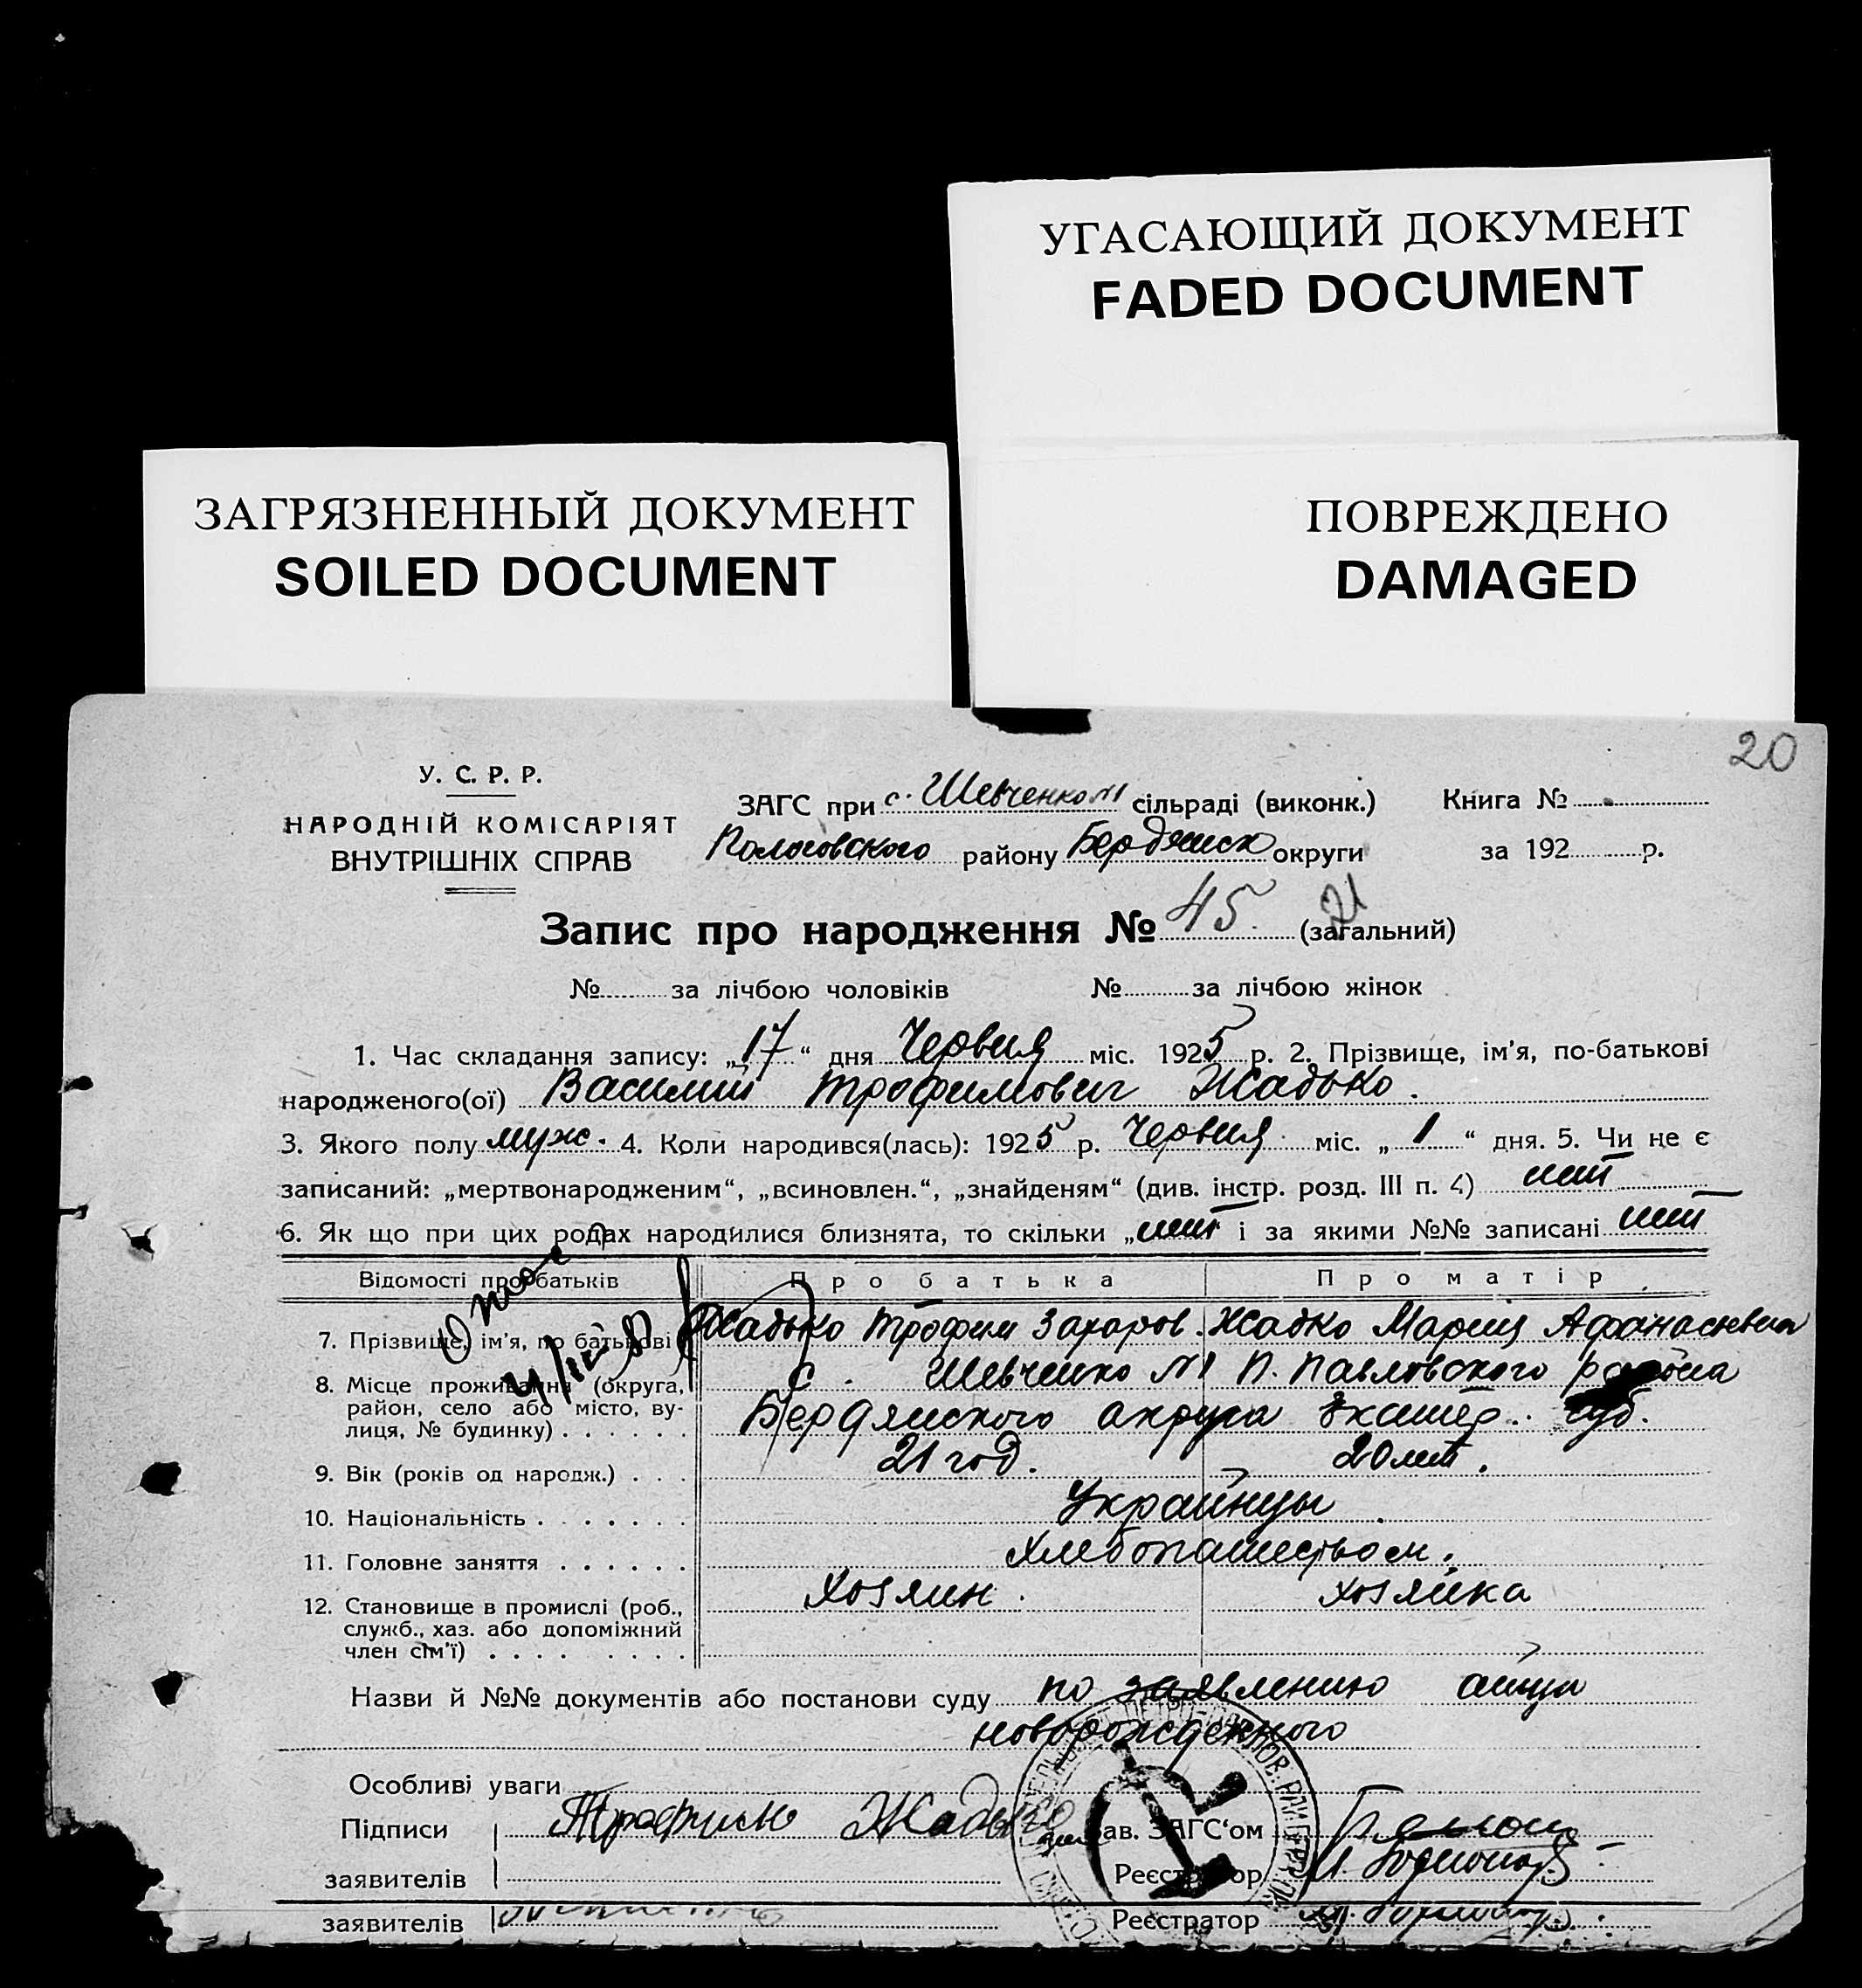 УГАСАЮЩИЙ ДОКУМЕНТ
FADED DOCUMENT
ЗАГРЯЗНЕННЫЙ ДОКУМЕНТ
SOILED DOCUMENT
ПОВРЕЖДЕНО
DAMAGED
20
У. С. Р. Р.
НАРОДНІЙ КОМІСАРІЯТ
ВНУТРІШНІХ СПРАВ
ЗАГС при с. Шевченко №1 сільраді (виконк.) Книга №
Пологовского району Бердянск округи за 192 р.
Запис про народження № 45. (загальний) 21
№ за лічбою чоловіків № за лічбою жінок
1. Час складання запису: „17“ дня Червня міс. 1925 р. 2. Прізвище, ім'я, по-батькові
народженого(ої) Василий Трофимович Жадько.
3. Якого полу муж. 4. Коли народився(лась): 1925 р. Червня міс. „1“ дня. 5. Чи не є
записаний: „мертвонародженим“, „всиновлен.“, „знайденям“ (див. інстр. розд. III п. 4) нит
6. Як що при цих родах народилися близнята, то скільки „нит і за якими №№ записані нит
Відомості про батьків Про батька Про матір
7. Прізвище, ім'я, по батькові Жадько Трофим Захаров. Жадко Мария Афанасьевна
8. Місце проживання (округа, с. Шевченко №1 П. Павловского района
район, село або місто, ву-
лиця, № будинку) Бердянского округа Екатер. губ.
9. Вік (років од народж.) 21 год. 20 лет.
10. Національність Украинцы
11. Головне заняття Хлебопашеством.
12. Становище в промислі (роб., Хозяин. хозяйка
служб., хаз. або допоміжний
член сім'ї)
Назви й №№ документів або постанови суду по заявлению отца
новорожденного
Особливі уваги
Підписи Трофим Жадько Зав. ЗАГС'ом
заявителів Реєстратор
заявителів Реєстратор